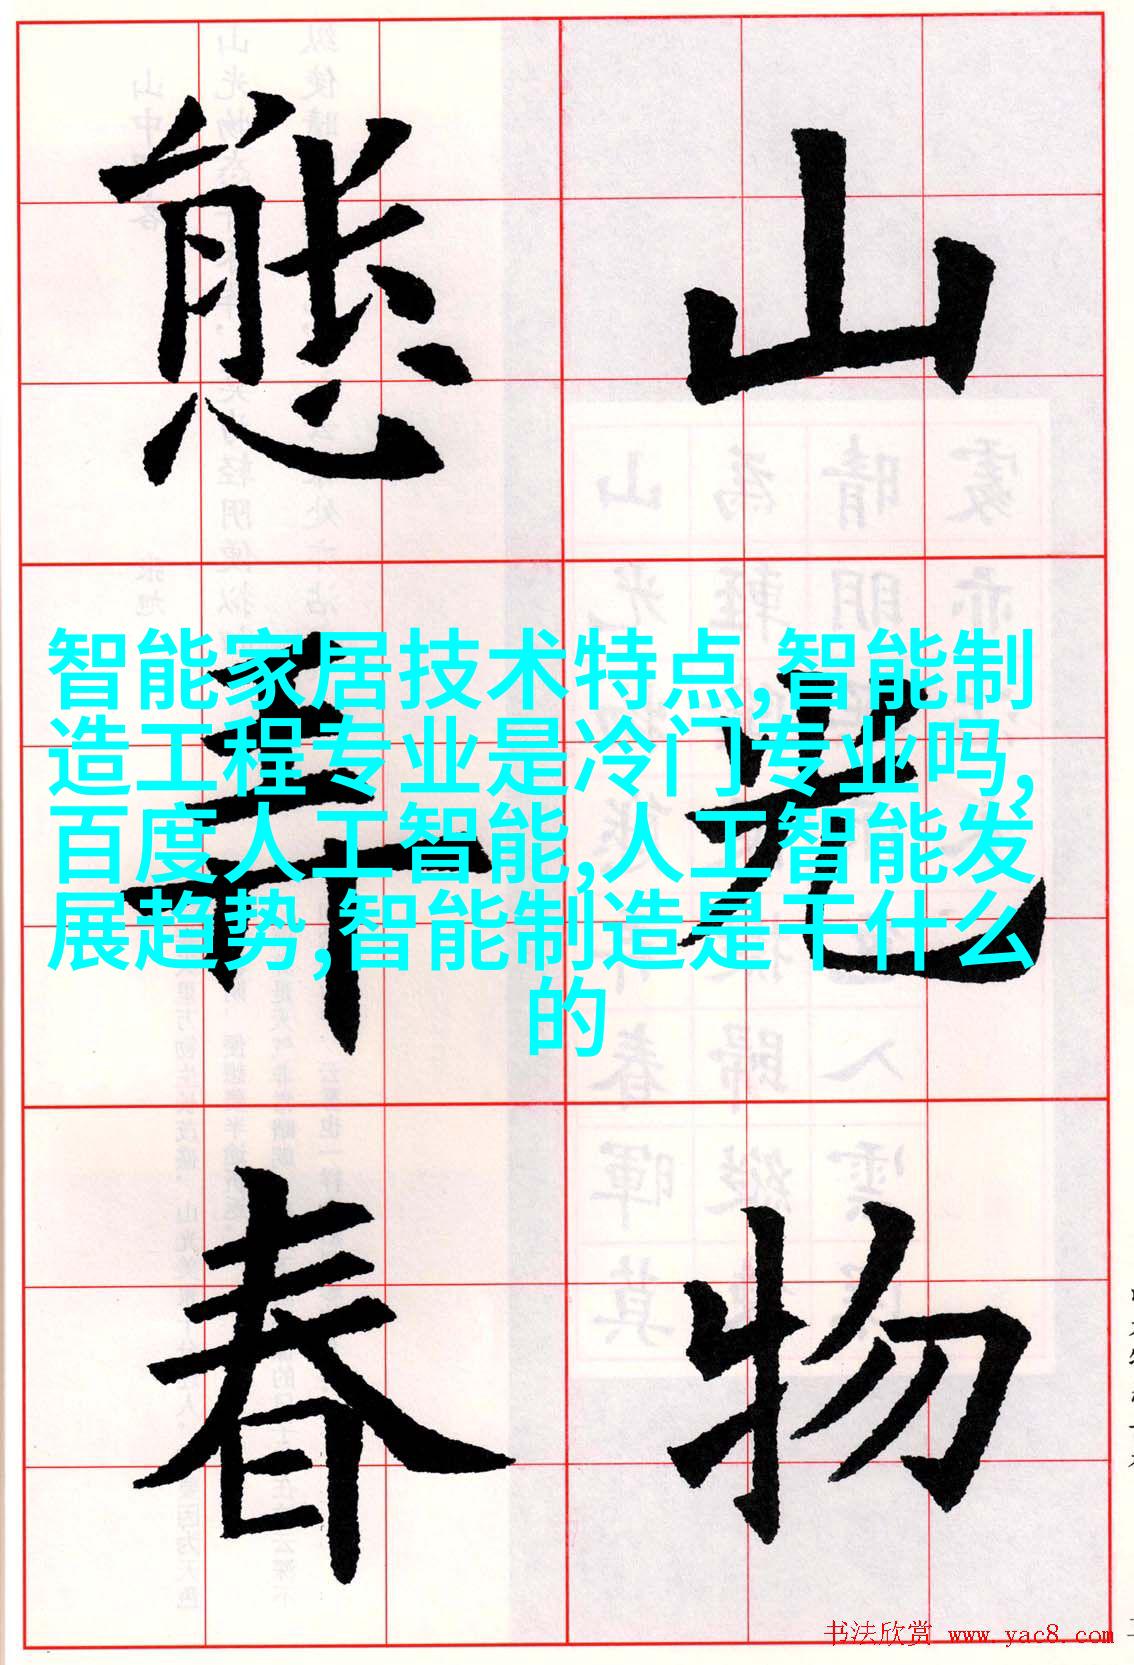 山光物
態弄春
智能家居技术特点,智能制
造工程专业是冷门专业吗,
百度人工智能,人工智能发
展趋势,智能制造是干什么
的
书法欣赏 www.yac8.com